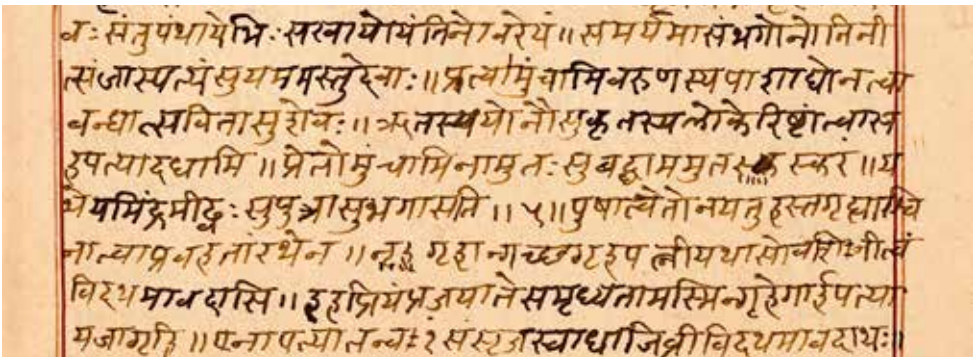 वः संतुपंथायेभिः सखायोयंतिनोवरेयं ॥ समर्यमासंभगोनोनिनी
त्संजास्पत्यंसुयममस्तुदेवाः ॥ प्रत्वामुंचामिवरुणस्यपाशाद्येनत्वा
बन्धात्सवितासुशेवः ॥ ऋतस्ययोनौसुकृतस्यलोकेरिष्टांत्वासह
पत्यादधामि ॥ प्रेतोमुंचामिनामुतः सुबद्धाममुतस्करं ॥ य
थेयमिंद्रमीढ्वः सुपुत्रासुभगासति ॥ ५ ॥ पुषात्वेतोनयतुहस्तगृह्याश्वि
नात्वाप्रवहतांरथेन ॥ गृहान्गच्छगृहपत्नीयथासोवशिनीत्वं
विदथमावदासि ॥ इहप्रियंप्रजयातेसमृध्यतामस्मिन्गृहेगार्हपत्या
यजागृहि ॥ एनापत्यातन्वं१ संसृजस्वाधाजिव्रीविदथमावदाथः ॥